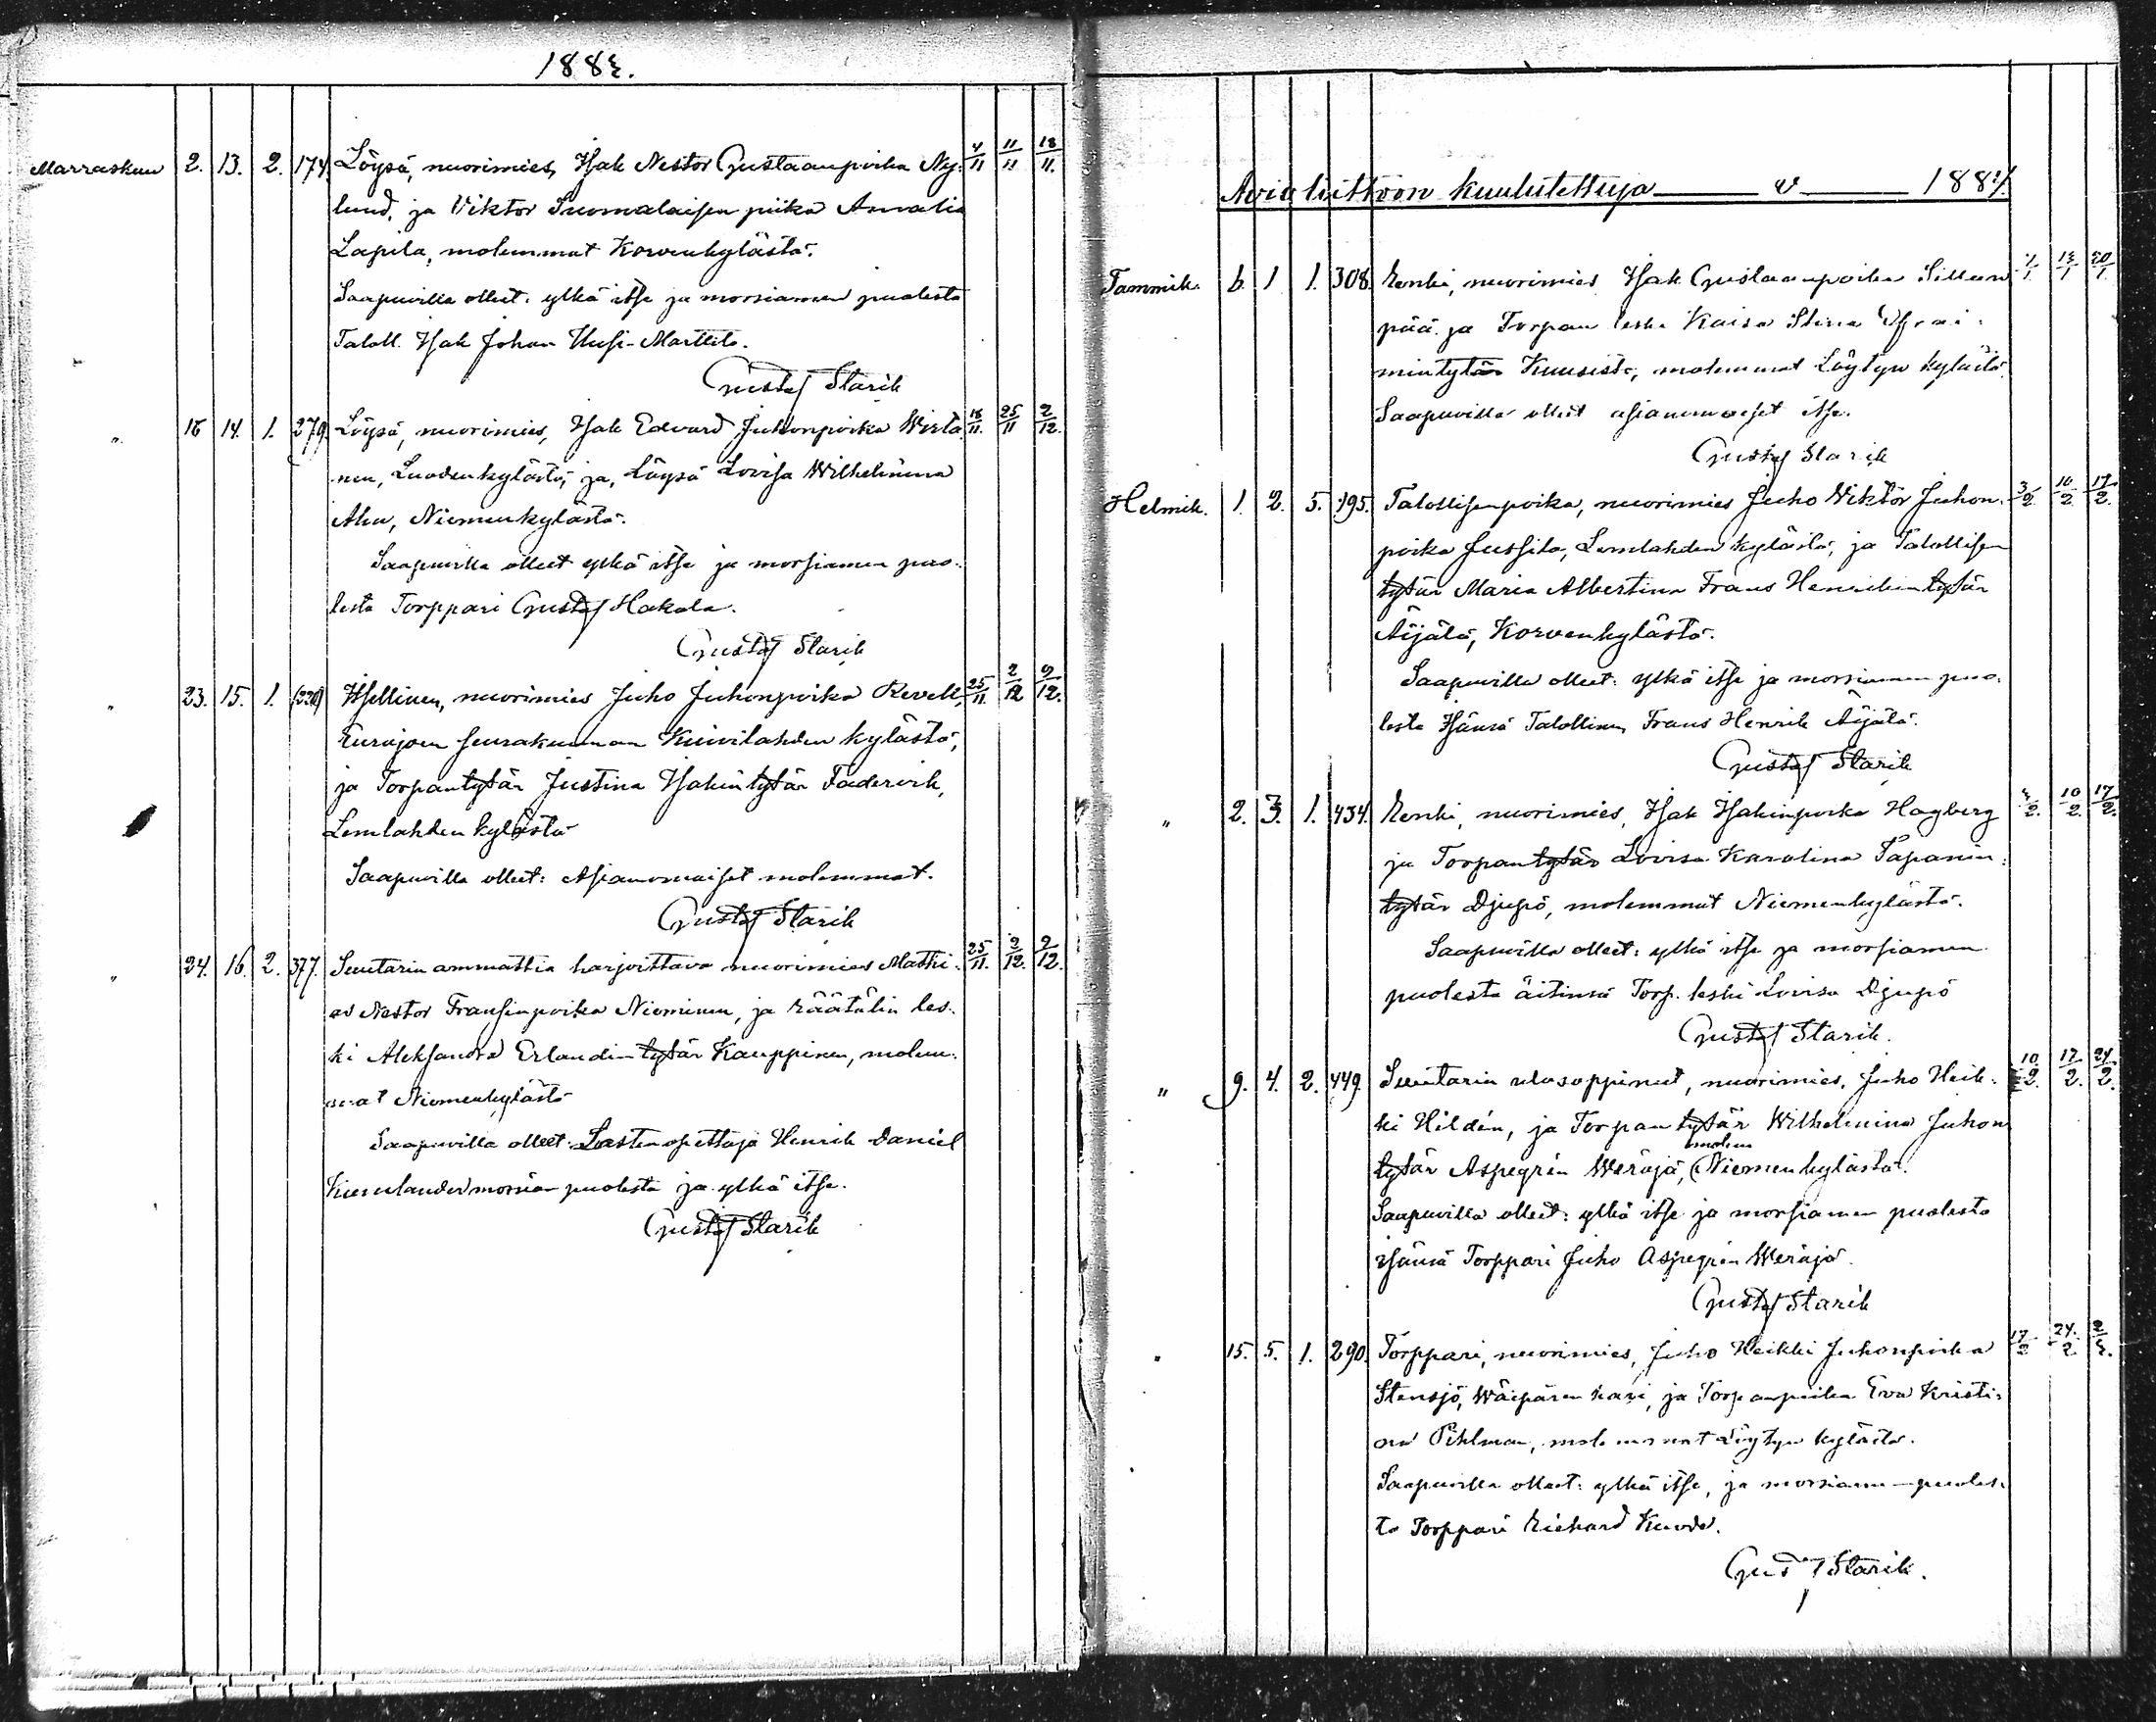 1883.
Marraskuu 2. 13. 2. 174. Löysä, nuorimies, Isak Nestor Gustaanpoika Ny- 4/11 11/11 18/11.
lund, ja Viktor Suomalaisen piika Amalia
Lapila, molemmat Korvenkylästä.
Saapuvilla olleet: ylkä itse ja morsiamen puolesta
Taloll. Isak Johan Uusi-Marttila.
Gustaf Starik
" 16 14. 1. 279. Löysä, nuorimies, Isak Edvard Juhonpoika Wirta- 18/11. 25/11 2/12.
nen, Luodenkylästä, ja, Löysä Lovisa Wilhelmina
Aho, Niemenkylästä.
Saapuvilla olleet ylkä itse ja morsiamen puo-
lesta Torppari Gustaf Hakala.
Gustaf Starik
" 23. 15. 1. Itsellinen, nuorimies Juho Juhonpoika Revell, 25/11. 2/12 9/12.
Eurajoen seurakunnan Kuivilahden kylästä,
ja Torpantytär Justina Isakintytär Fadervik,
Lemlahden kylästä
Saapuvilla olleet: Asianomaiset molemmat.
Gustaf Starik
" 24. 16. 2. 377. Suutarin ammattia harjoittava nuorimies Mathi- 25/11. 2/12. 9/12.
as Nestor Fransinpoika Nieminen, ja räätälin les-
ki Aleksandra Erlandintytär Kauppinen, molem-
mat Niemenkylästä
Saapuvilla olleet: Lastenopettaja Henrik Daniel
morsian puolesta ja ylkä itse.
Gustaf Starik
Avioliittoon kuulutettuja v 1884.
Tammik. 6. 1 1. 308. Renki, nuorimies Isak Gustaanpoika Sillan- 13/1 20/1.
pää ja Torpan leski Kaisa Stina Efrai-
mintytär Kuusisto, molemmat Löytyn kylästä.
Saapuvilla olleet asianomaiset itse.
Gustaf Starik
Helmik. 1. 2. 5. 195. Talollisenpoika, nuorimies Juho Viktor Juhon- 3/2 10/2 17/2.
poika Jussila, Lemlahden kylästä, ja Talollisen
tytär Maria Albertina Frans Henrikintytär
Äijälä, Korvenkylästä.
Saapuvilla olleet: ylkä itse ja morsiamen puo-
lesta Isänsä Talollinen Frans Henrik Äijälä.
Gustaf Starik
" 2. 3. 1. 434. Renki, nuorimies, Isak Isakinpoika Hagberg 3/2. 10/2. 17/2.
ja Torpantytär Lovisa Karolina Tapanin-
tytär Djupö, molemmat Niemenkylästä.
Saapuvilla olleet: ylkä itse ja morsiamen
puolesta äitinsä Torp. leski Lovisa Djupö
Gustaf Starik.
" 9. 4. 2. 449. Suutarin ulosoppinut, nuorimies, Juho Heik- 10/2. 17/2. 24/2.
ki Hildén, ja Torpan tytär Wilhelmina Juhon
molem
tytär Aspegrén Weräjä, Niemenkylästä.
Saapuvilla olleet: ylkä itse ja morsiamen puolesta
isänsä Torppari Juho Aspegrén Weräjä.
Gustaf Starik
" 15. 5. 1. 290. Torppari, nuorimies, Juho Heikki Juhonpoika 17/2 24/2. 2/3.
Stensjö, ja Torpanpiika Eva Kristi-
na Pihlman, molemmat Löytyn kylästä.
Saapuvilla olleet: ylkä itse, ja morsiamen puoles-
ta Torppari Richard Kuoda.
Gustaf Starik.